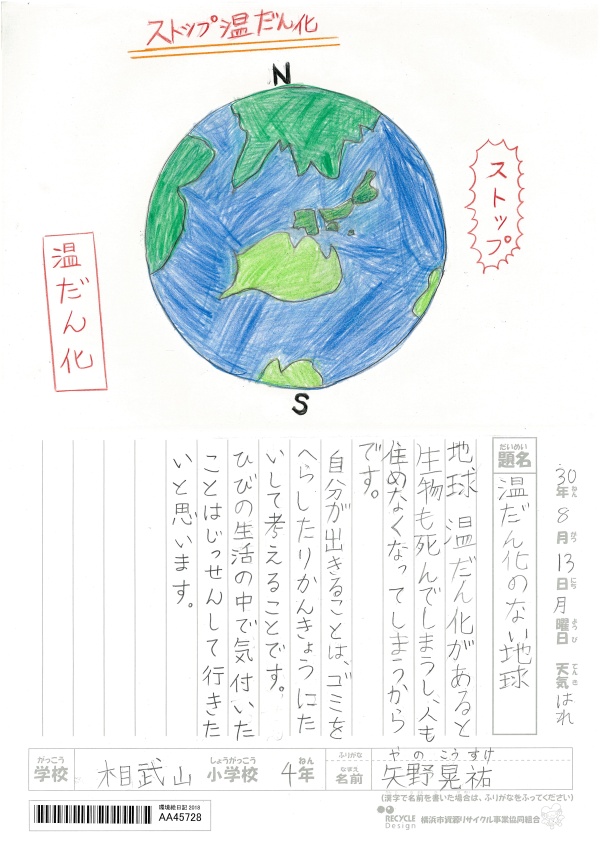 ストップ温だん化
N
ストップ
温だん化
S
30年ねん8月がつ13日にち月曜日ようび 天気てんきはれ
だいめい
題名
温だん化のない地球
地球温だん化があると
生物も死んでしまうし、人も
住めなくなってしまうから
です。
自分が出きることは、ゴミを
へらしたりかんきょうにた
いして考えることです。
ひびの生活の中で気付いた
ことはじっせんして行きた
いと思います。
がっこう
学校
相武山
しょうがっこう
小学校
4年ねん
ふりがな
やの こうすけ
なまえ
名前
矢野晃祐
(漢字で名前を書いた場合は、ふりがなをふってください)
環境絵日記 2018
AA45728
RECYCLE Design
横浜市資源リサイクル事業協同組合